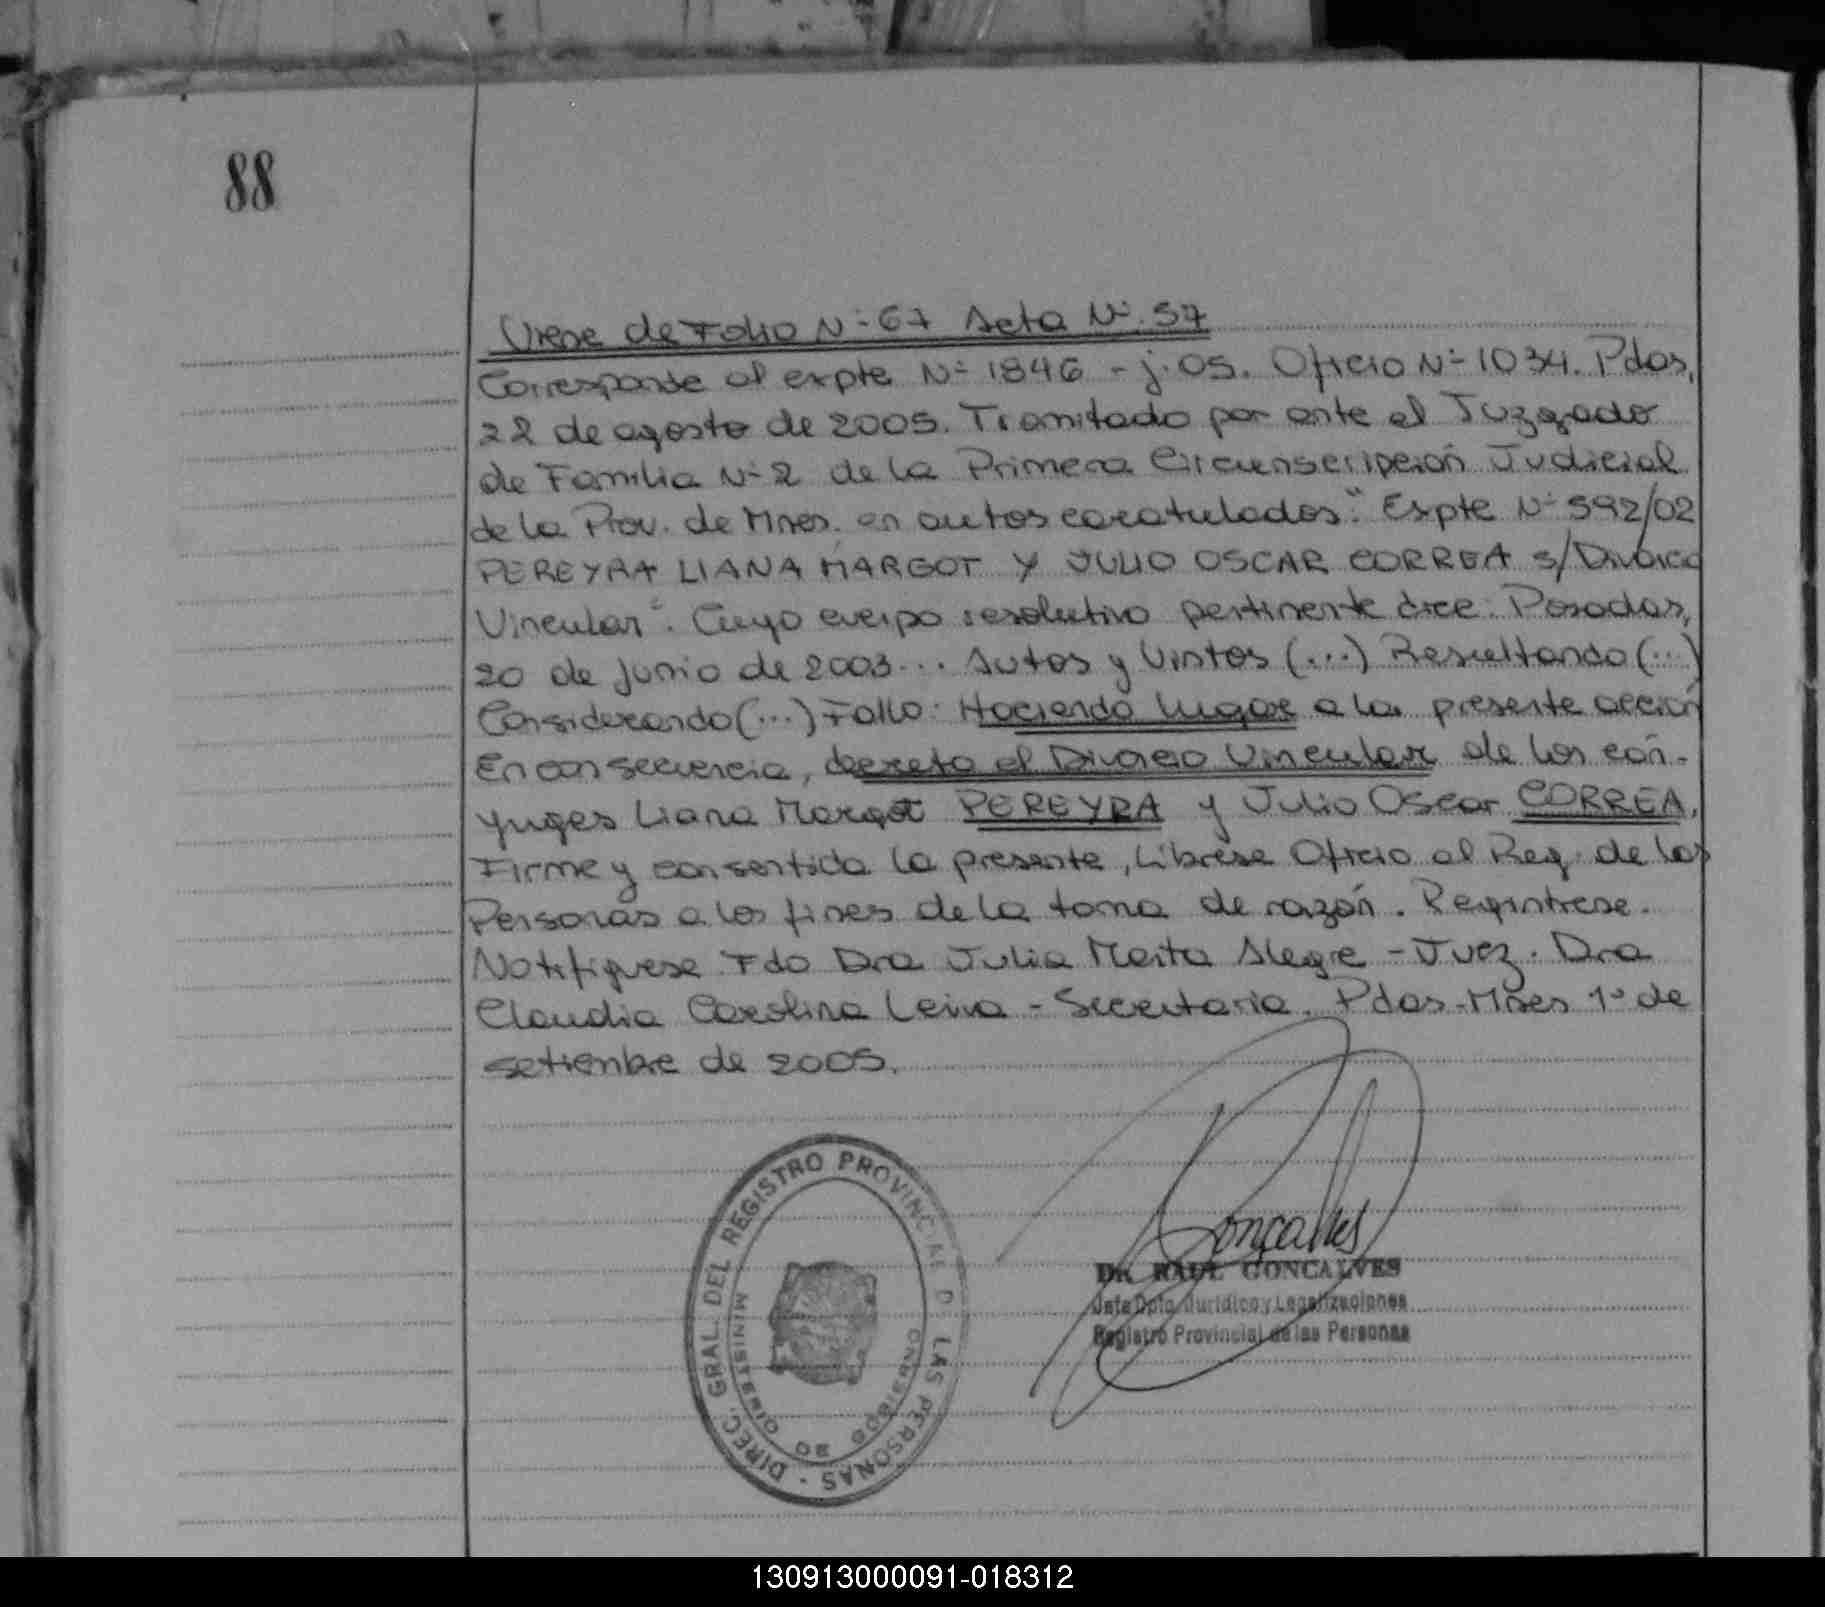 88
Viene de Folio Nº 67 Acta Nº 57
Corresponde al expte Nº 1846 - j. 05. Oficio Nº 1034. Pdas,
22 de agosto de 2005. Tramitado por ante el Juzgado
de Familia Nº 2 de la Primera Circunscripción Judicial
de la Prov. de Mnes. en autos caratulados: "Expte Nº 592/02
PEREYRA LIANA MARGOT Y JULIO OSCAR CORREA s/Divorcio
Vincular". Cuyo cuerpo resolutivo pertinente dice: Posadas,
20 de junio de 2003... Autos y Vistos (...) Resultando (...)
Considerando (...) Fallo: Haciendo lugar a la presente acción
En consecuencia, decreto el Divorcio Vincular de los cón-
yuges Liana Margot PEREYRA y Julio Oscar CORREA.
Firme y consentida la presente, Líbrese Oficio al Reg. de las
Personas a los fines de la toma de razón. Regístrese.
Notifíquese Fdo Dra Julia Marta Alegre - Juez. Dra
Claudia Carolina Leiva - Secretaria. Pdas-Mnes 1º de
setiembre de 2005.
DIREC. GRAL. DEL REGISTRO PROVINCIAL D LAS PERSONAS -
MINISTERIO DE GOBIERNO
Goncalves
DR. RAUL GONCALVES
Jefe Dpto. Jurídico y Legalizaciones
Registro Provincial de las Personas
130913000091-018312